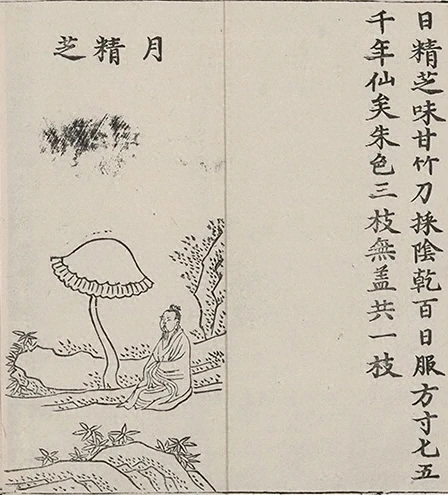 日精芝味甘竹刀採陰乾百日服方寸七五
千年仙矣朱色三枝無盖共一枝
月精芝